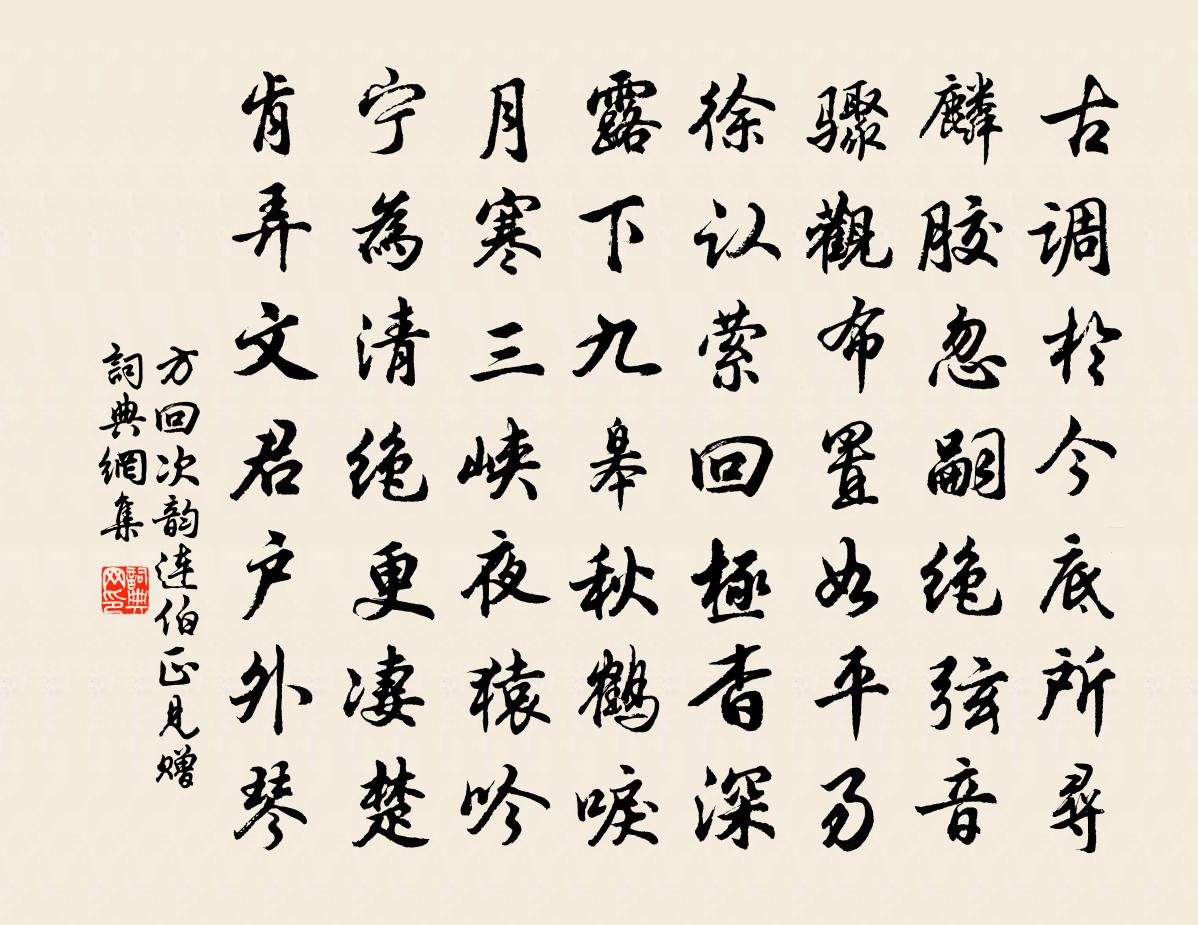 古调於今底所尋
麟胶忽嗣绝弦音
骤觀布置如平易
徐认萦回極杳深
露下九皋秋鹤唳
月寒三峡夜猿吟
宁為清绝更凄楚
肯弄文君户外琴
方回次韵连伯正见赠
詞典網集
詞典网印